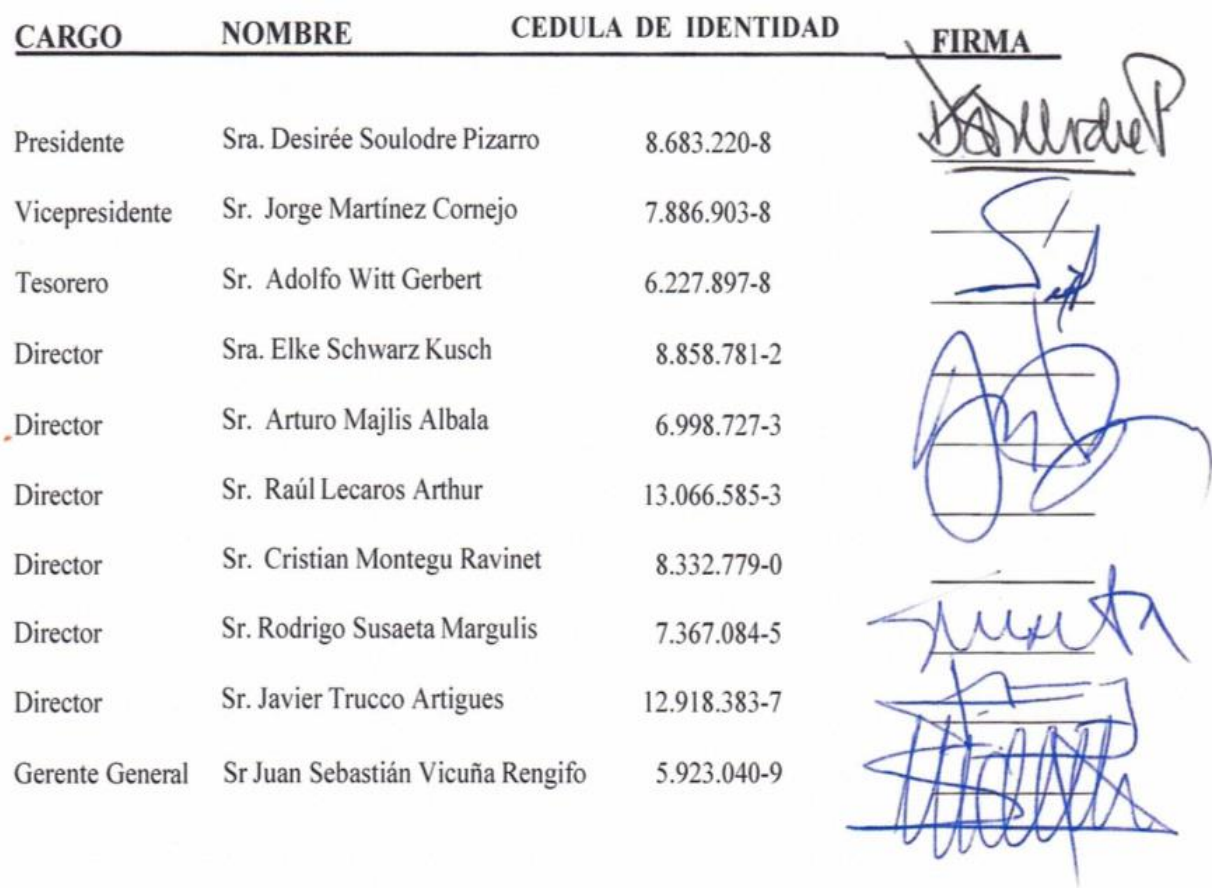 CARGO NOMBRE CEDULA DE IDENTIDAD FIRMA
Presidente Sra. Desirée Soulodre Pizarro 8.683.220-8
Vicepresidente Sr. Jorge Martínez Cornejo 7.886.903-8
Tesorero Sr. Adolfo Witt Gerbert 6.227.897-8
Director Sra. Elke Schwarz Kusch 8.858.781-2
Director Sr. Arturo Majlis Albala 6.998.727-3
Director Sr. Raúl Lecaros Arthur 13.066.585-3
Director Sr. Cristian Montegu Ravinet 8.332.779-0
Director Sr. Rodrigo Susaeta Margulis 7.367.084-5
Director Sr. Javier Trucco Artigues 12.918.383-7
Gerente General Sr Juan Sebastián Vicuña Rengifo 5.923.040-9